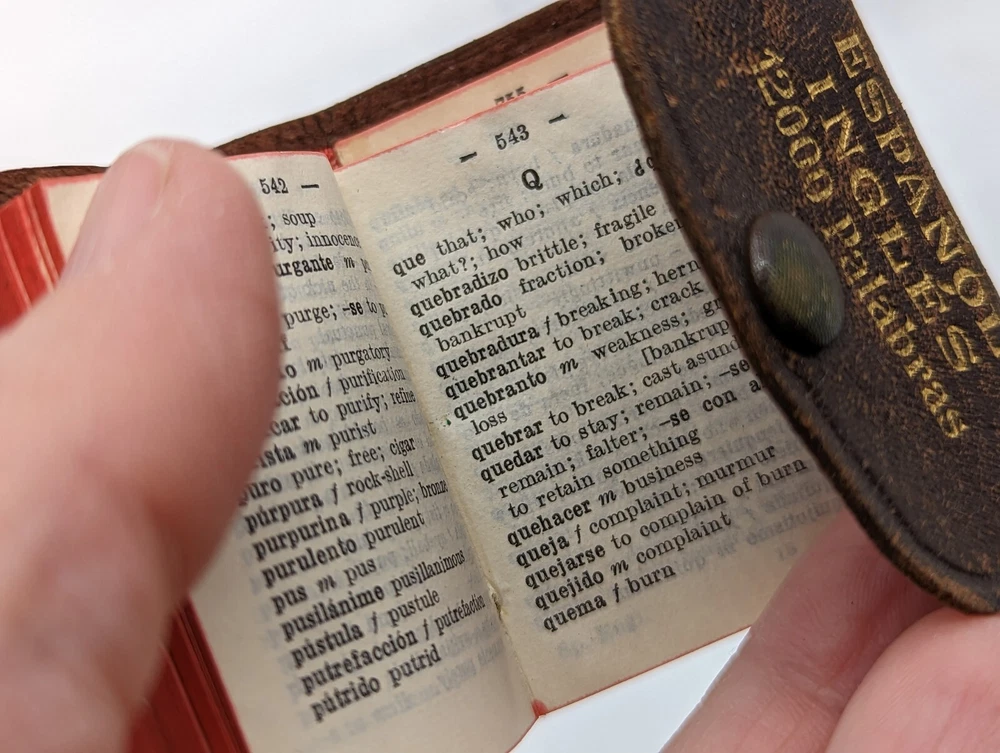 542 —
; soup
ity; innocence
urgante m
purge; -se to
o m purgatory
ción f purification
car to purify; refine
ista m purist
puro pure; free; cigar
púrpura f rock-shell
purpurina f purple; bronze
purulento purulent
pus m pus
pusilánime pusillanimous
pústula f pustule
putrefacción f putrefaction
pútrido putrid
— 543 —
Q
que that; who; which;
what?; how
quebradizo brittle; fragile
quebrado fraction; broken
bankrupt
quebradura f breaking; hern
quebrantar to break; crack
quebranto m weakness;
loss [bankrup
quebrar to break; cast asund
quedar to stay; remain; -se
remain; falter; -se con a
to retain something
quehacer m business
queja f complaint; murmur
quejarse to complain of burn
quejido m complaint
quema f burn
ESPAÑOL
INGLES
12000 palabras